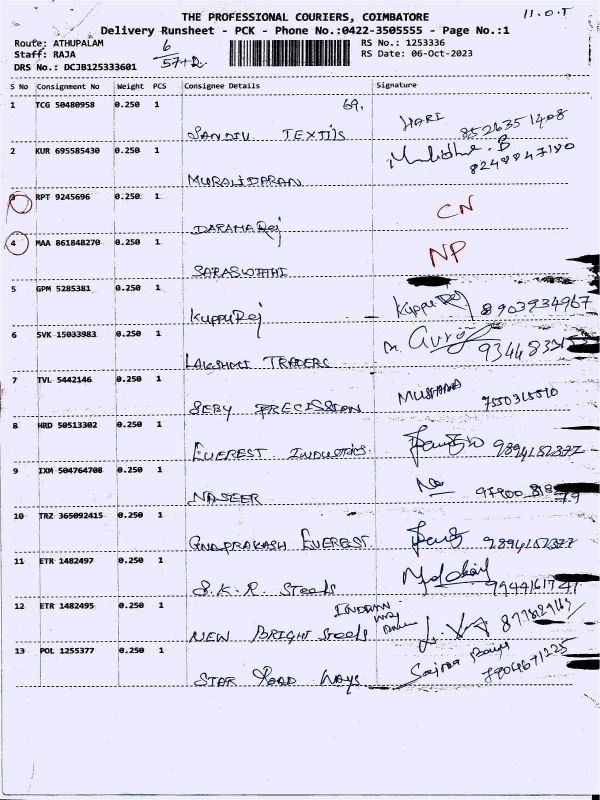 THE PROFESSIONAL COURIERS, COIMBATORE
11.0.T
Delivery Runsheet - PCK - Phone No.:0422-3505555 - Page No.:1
Route: ATHUPALAM RS No.: 1253336
Staff: RAJA RS Date: 06-Oct-2023
DRS No.: DCJB125333601
6
S No Consignment No Weight PCS Consignee Details Signature
1 TCG 50480958 0.250 1 69.
SANDIV TEXTILS HARI 8526351408
2 KUR 695585430 0.250 1
MURALIDARAN 8248847180
3 RPT 9245696 0.250 1 CN
DARAMARaj
4 MAA 861848270 0.250 1 NP
SARASWATHI
5 GPM 5285381 0.250 1
KuppuRaj KuppuRaj 8903934967
6 SVK 15033983 0.250 1
LAKSHMI TRADERS
7 TVL 5442146 0.250 1
SEBY PRECISSION 7550315510
8 HRD 50513302 0.250 1
EVEREST INDUSTRIES 9894152377
9 IXM 504764708 0.250 1
NASEER
10 TRZ 365092415 0.250 1
GNAPRAKASH EVEREST 9894152377
11 ETR 1482497 0.250 1
S.K.R. Steels
12 ETR 1482495 0.250 1 INDIAN
NEW BRIGHT Steels
13 POL 1255377 0.250 1
STAR ROAD WAYS 7904671225